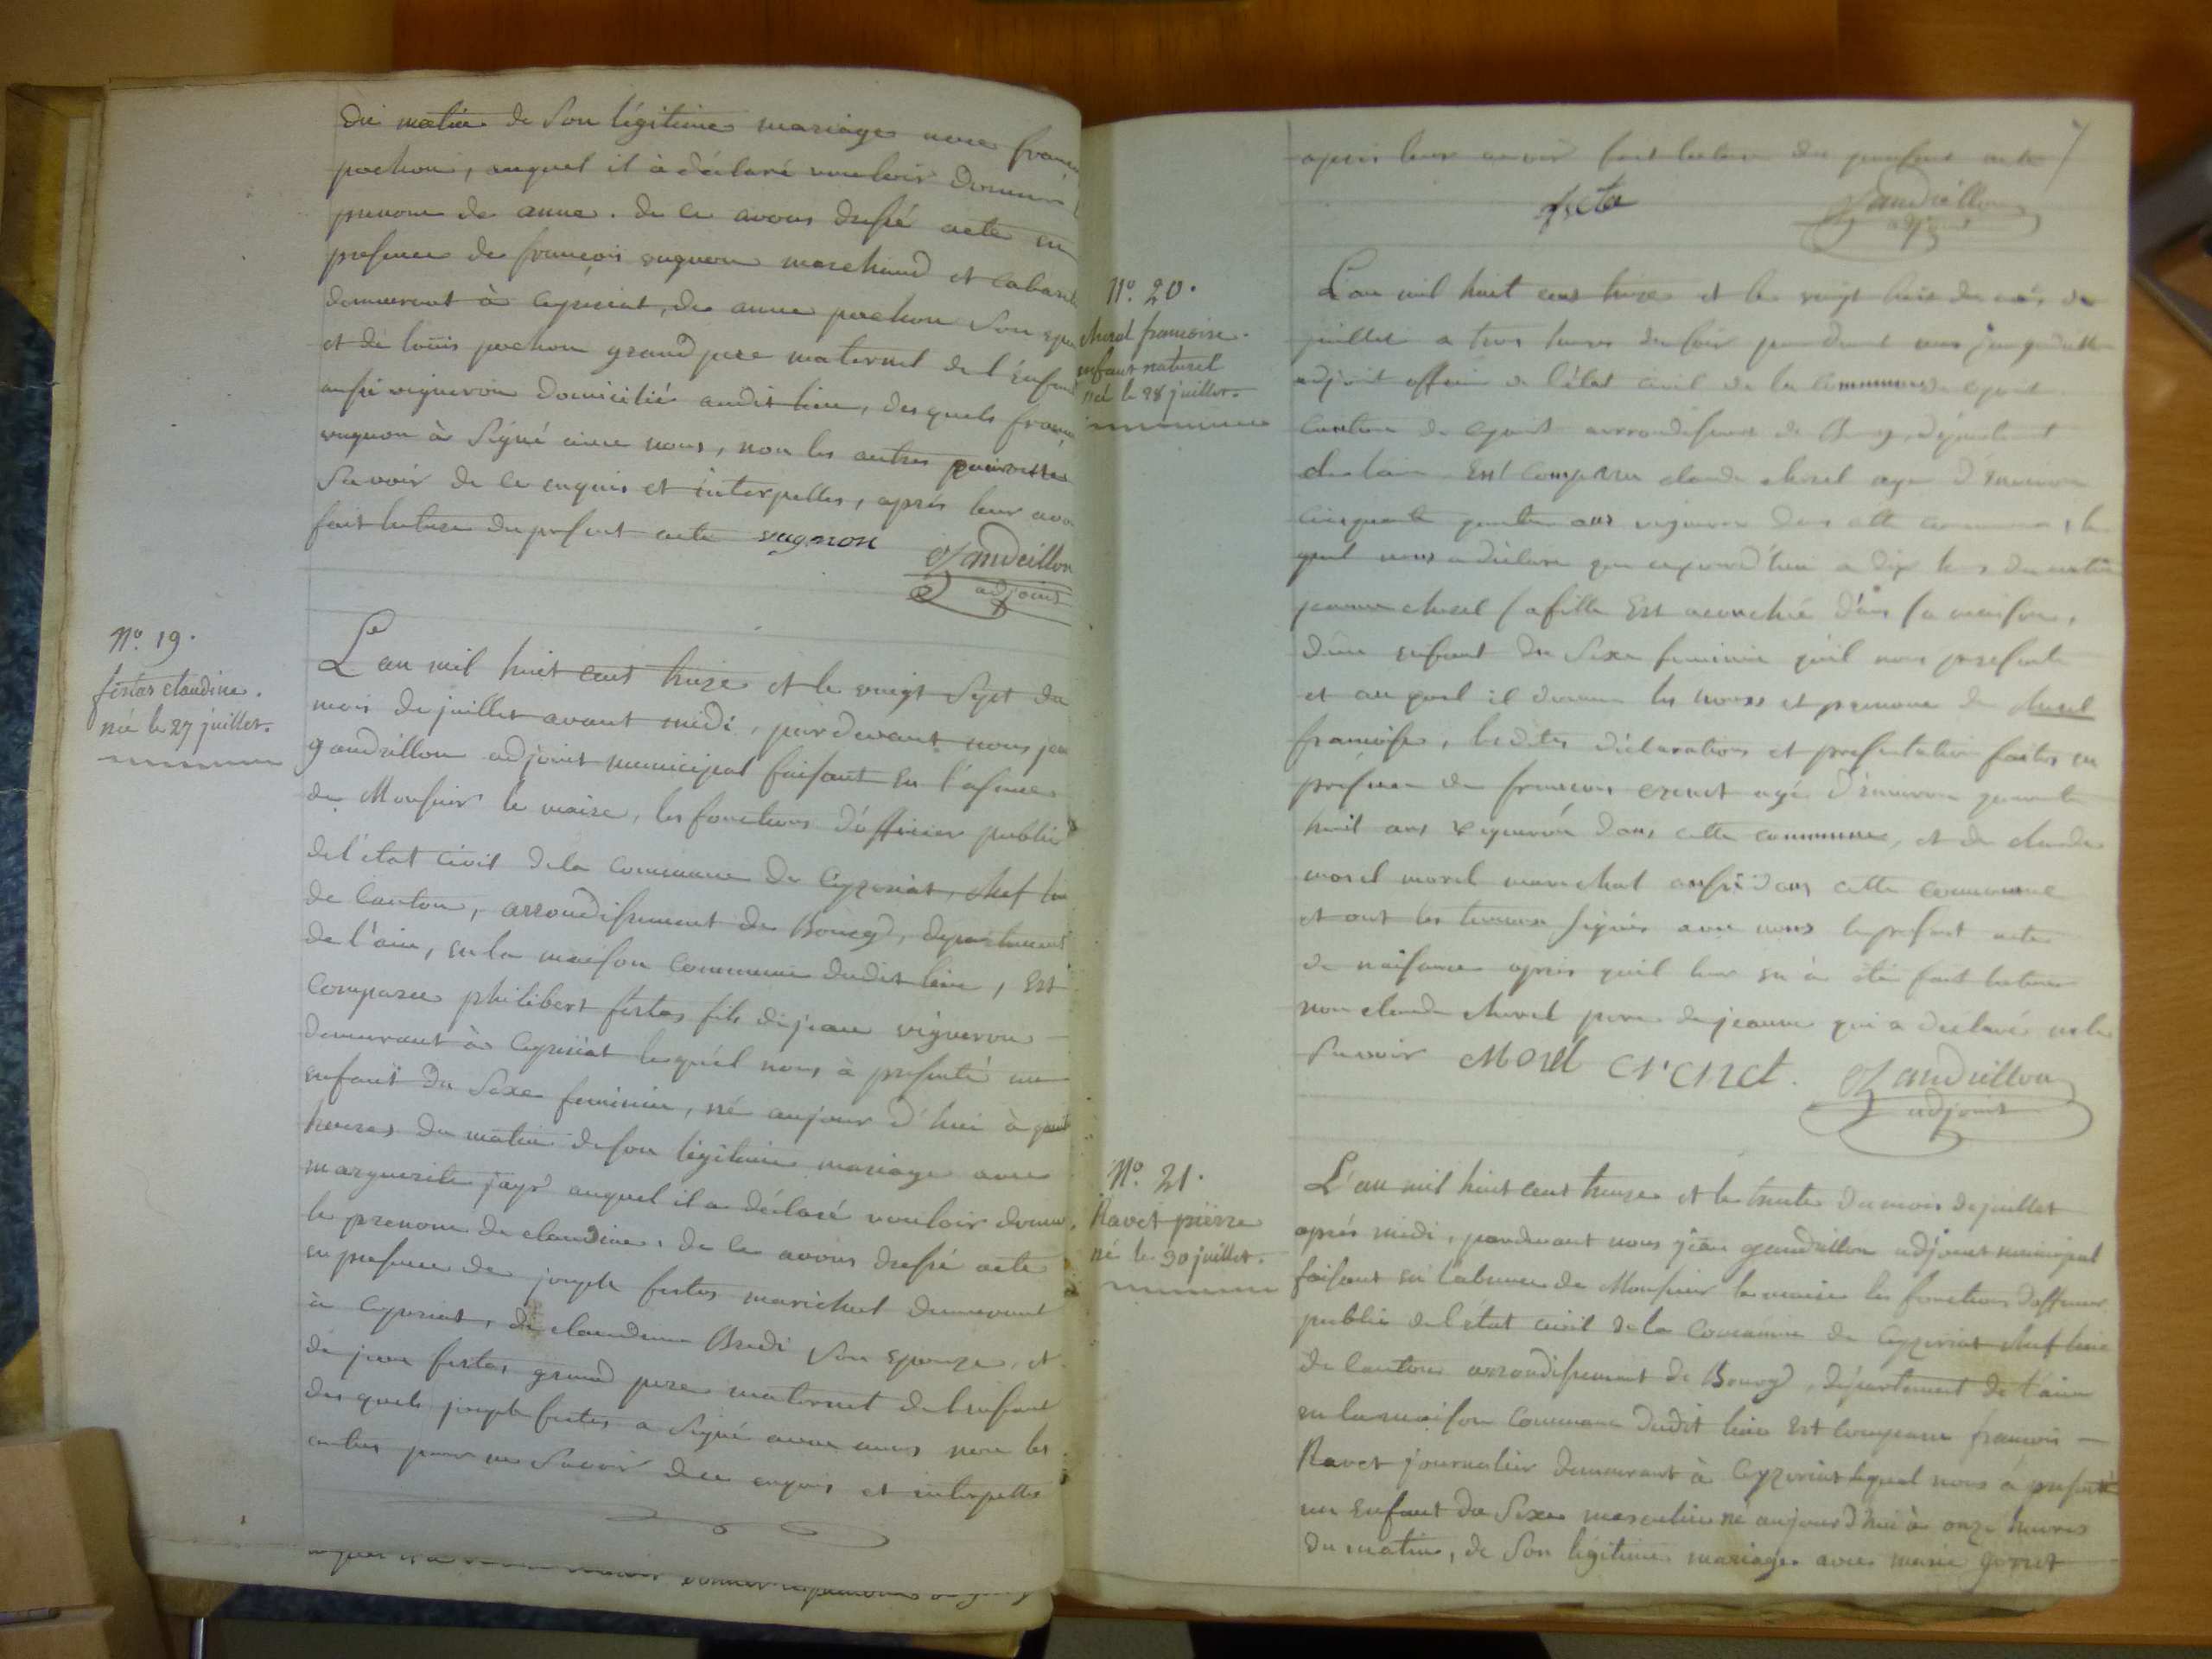 du matin de son légitime mariage avec
pochon, auquel il à déclaré vouloir donner
prenom de anne. de ce avons dressé acte en
presence de françois vugnon marchand et
demeurant à Ceyzeriat, de anne pochon son
et de loüis pochon grand pere maternel de l'enfant
aussi vigneron domicilié audit lieu, desquels
vugnon à signé avec nous, non les autres pour ne
savoir de ce enquis et interpellés, après leur
fait lecture du present acte vugnon
gandrillon
adjoint
N.º 19.
festas claudine.
née le 27 juillet.
L'an mil huit cent treize et le vingt sept du
mois de juillet avant midi, pardevant nous
gandrillon adjoint municipal faisant en l'absence
de Monsieur le maire, les fonctions d'officier public
de l'état civil de la commune de Ceyzeriat, chef
de canton, arrondissement de Bourg, departement
de l'ain, en la maison commune dudit lieu, est
comparu philibert festas fils de jean vigneron
demeurant à Ceyzeriat lequel nous à presenté un
enfant du sexe feminin, né aujourd'hui à
heures du matin de son légitime mariage avec
marguerite jayr auquel il a déclaré vouloir donner
le prenom de claudine. de ce avons dressé acte
en presence de joseph festas marichal demeurant
à Ceyzeriat, de claudine Bredi son epouze, et
de jean festas grand pere maternel de l'enfant
des quels joseph festas a signé avec nous non les
autres pour ne savoir de ce enquis et interpellés
7
après leur avoir fait lecture du present acte
festa
gandrillon
adjoint
N.º 20.
chorel francoise.
enfant naturel
né le 28 juillet.
L'an mil huit cent treize et le vingt huit du mois de
juillet a trois heures du soir pardevant nous jean gandrillon
adjoint officier de l'état civil de la commune de
canton de arrondissement de Bourg, département
de lain est comparu claude chorel agé d'environ
cinquante quatre ans vigneron dans cette commune, le
quel nous a déclaré que aujourd'hui a dix heures du matin
jeanne chorel sa fille est acouchée dans sa maison,
d'un enfant du sexe feminin qu'il nous presente
et auquel il donne les noms et prenoms de chorel
francoise, lesdites déclarations et presentation faites en
présence de francois agé d'environ quarante
huit ans vigneron dans cette commune, et de claude
morel morel marechal aussi dans cette commune
et ont les temoins signés avec nous le present acte
de naissance après quil leur en à été fait lecture
non claude chorel pere de jeanne qui a déclaré ne le
savoir Morel
gandrillon
adjoint
N.º 21.
Ravet pierre
né le 30 juillet.
L'an mil huit cent treize et le trente du mois de juillet
après midi, pardevant nous jean gandrillon adjoint municipal
faisant en l'absence de Monsieur le maire les fonctions d'officier
public de l'état civil de la commune de Ceyzeriat chef lieu
de canton arrondissement de Bourg, département de l'ain
en la maison commune dudit lieu est comparu francois
Ravet journalier demeurant à Ceyzeriat lequel nous à presenté
un enfant du sexe masculin né aujourd'hui à onze heures
du matin, de son légitime mariage avec marie